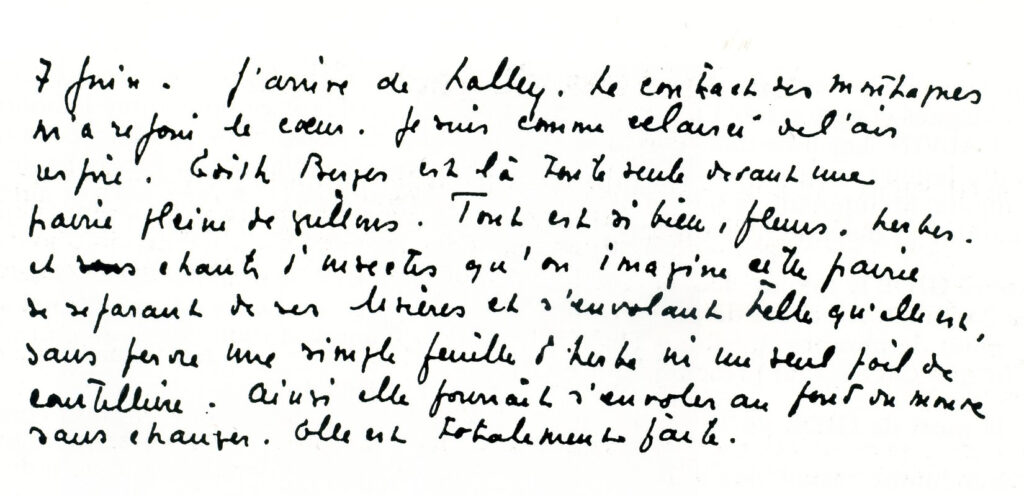 7 Juin. J'arrive de Lalley. Le contact des montagnes
m'a rejoui le cœur. Je suis comme eclairci de l'air
respiré. Edith Berger est là toute seule devant une
prairie pleine de grillons. Tout est si bien, fleurs, herbes.
et chants d'insectes qu'on imagine cette prairie
se separant de ses lisières et s'envolant telle qu'elle est,
sans perdre une simple feuille d'herbe ni un seul poil de
courtillière. Ainsi elle pourrait s'envoler au fond du monde
sans changer. Elle est totalement faite.